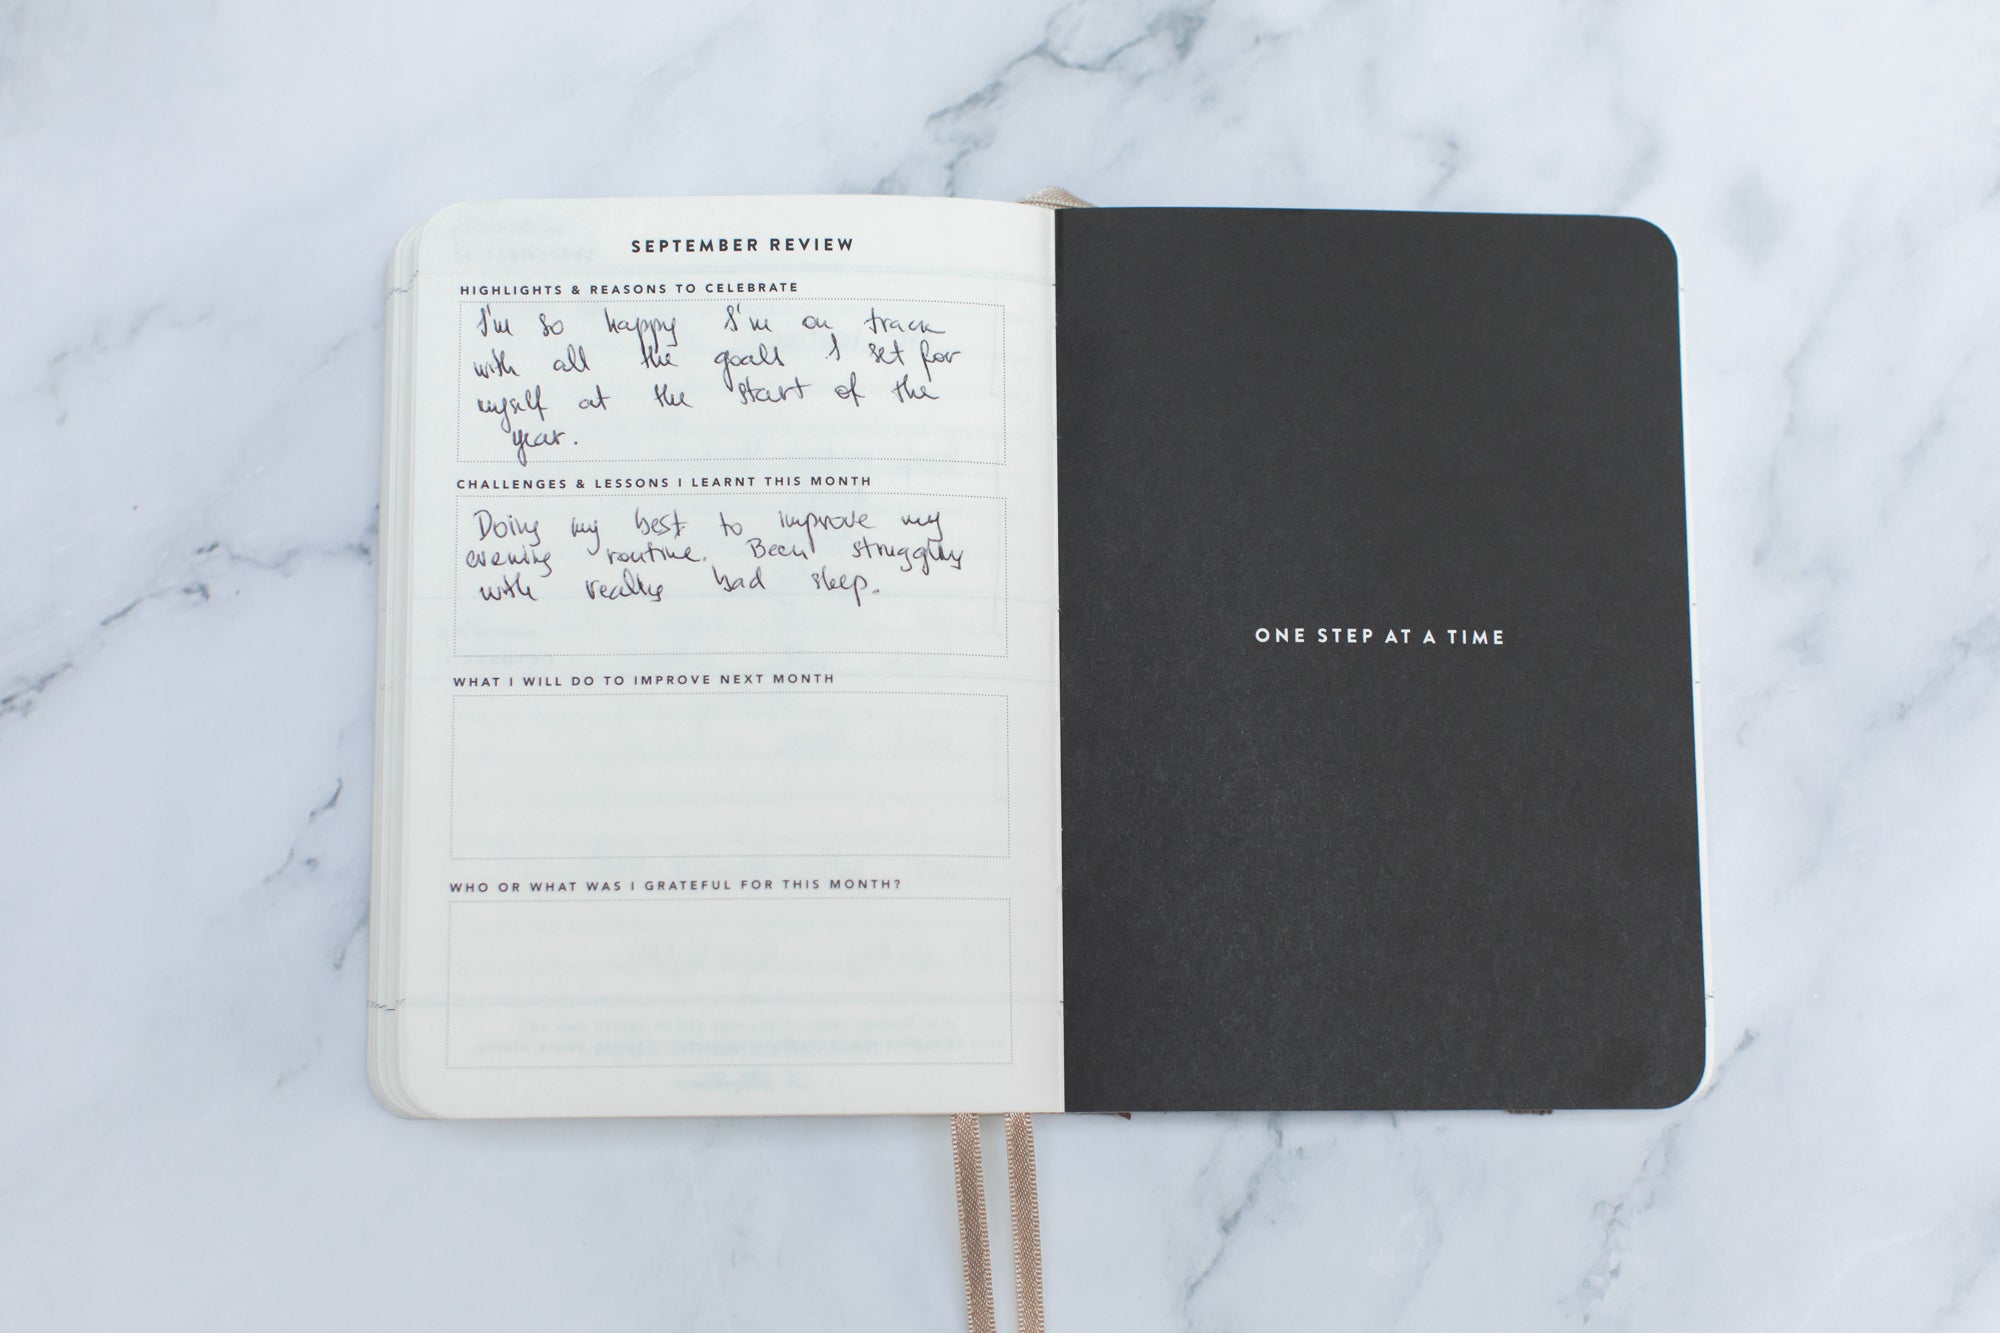 SEPTEMBER REVIEW
HIGHLIGHTS & REASONS TO CELEBRATE
I'm so happy I'm on track
with all the goals I set for
myself at the start of the
year.
CHALLENGES & LESSONS I LEARNT THIS MONTH
Doing my best to improve my
evening routine. Been struggling
with really bad sleep.
WHAT I WILL DO TO IMPROVE NEXT MONTH
WHO OR WHAT WAS I GRATEFUL FOR THIS MONTH?
ONE STEP AT A TIME